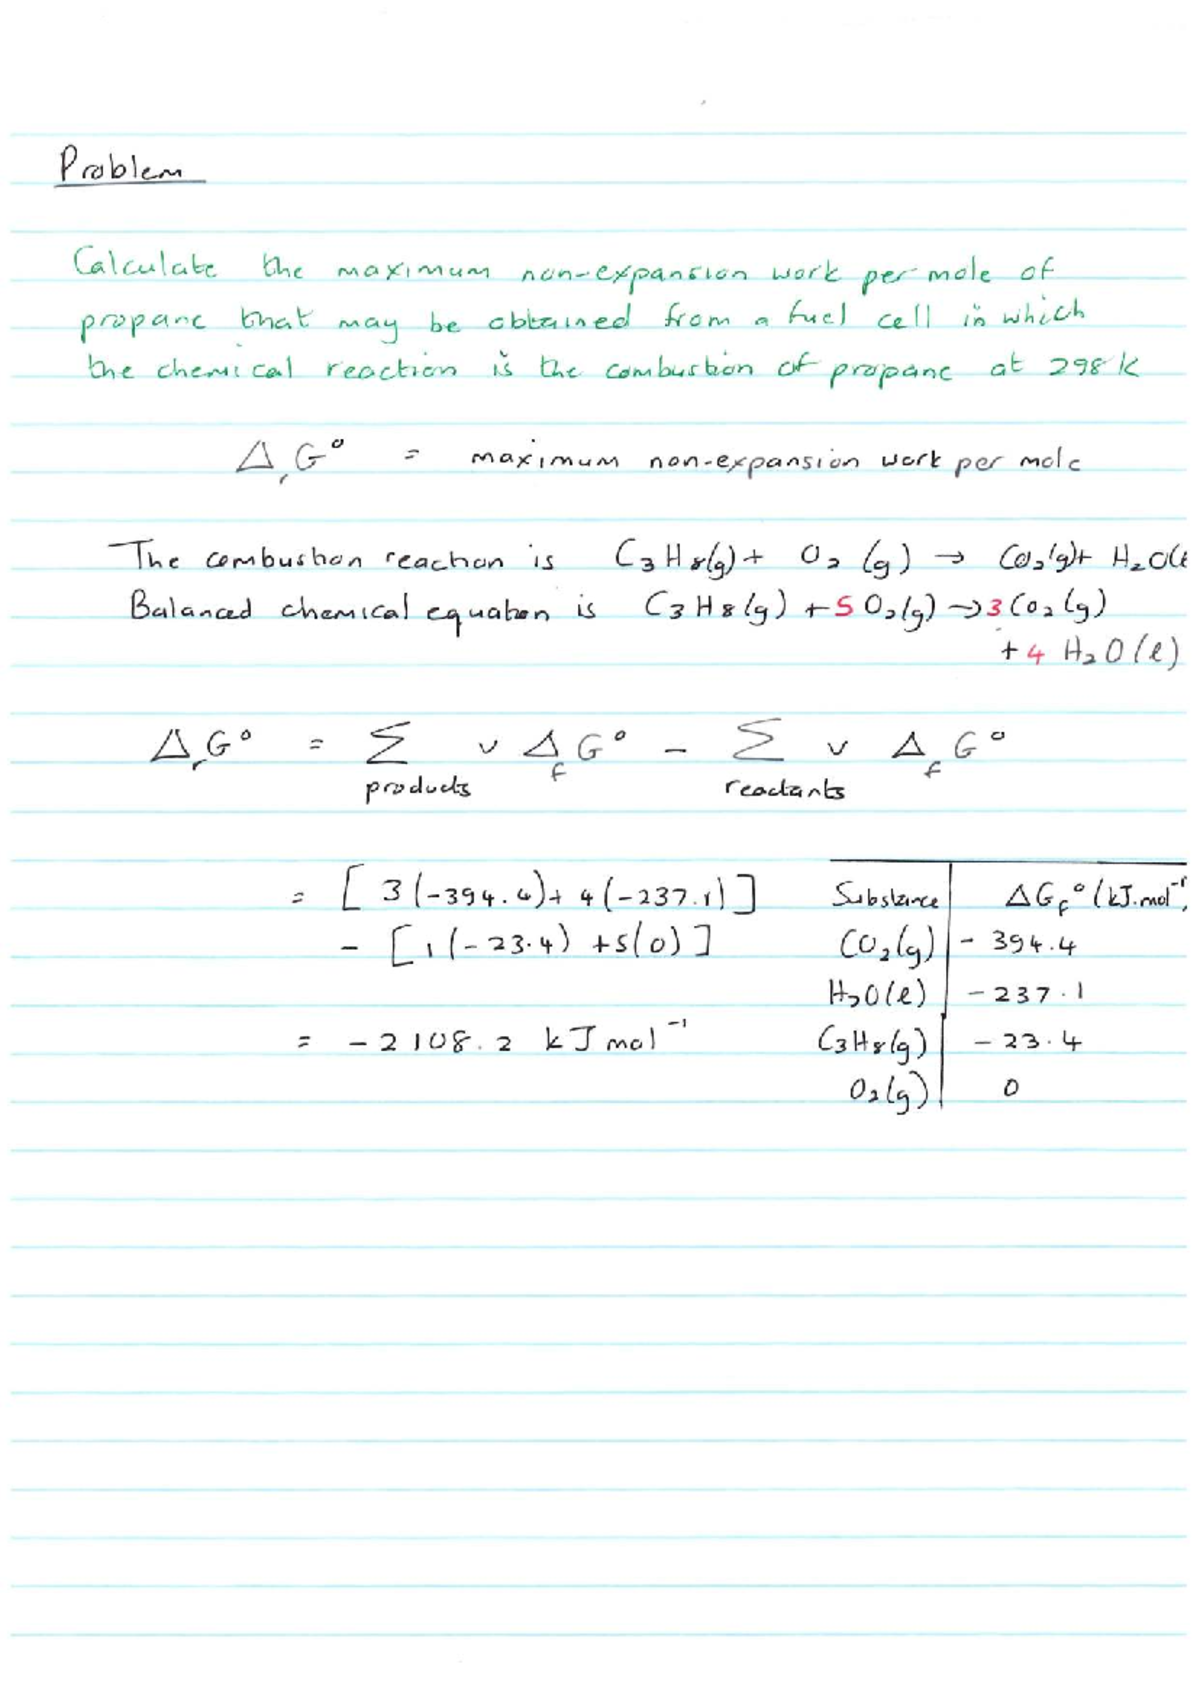 Problem
Calculate the maximum non-expansion work per mole of
propane that may be obtained from a fuel cell in which
the chemical reaction is the combustion of propane at 298 K
ΔrG° = maximum non-expansion work per mole
The combustion reaction is C3H8(g) + O2(g) → CO2(g) + H2O(ℓ
Balanced chemical equation is C3H8(g) + 5O2(g) → 3CO2(g)
+ 4 H2O(ℓ)
ΔrG° = Σ ν ΔfG° - Σ ν ΔfG°
products reactants
= [3(-394.4) + 4(-237.1)]
- [1(-23.4) + 5(0)]
= -2108.2 kJ mol⁻¹
Substance ΔGf° (kJ.mol⁻¹
CO2(g) -394.4
H2O(ℓ) -237.1
C3H8(g) -23.4
O2(g) 0